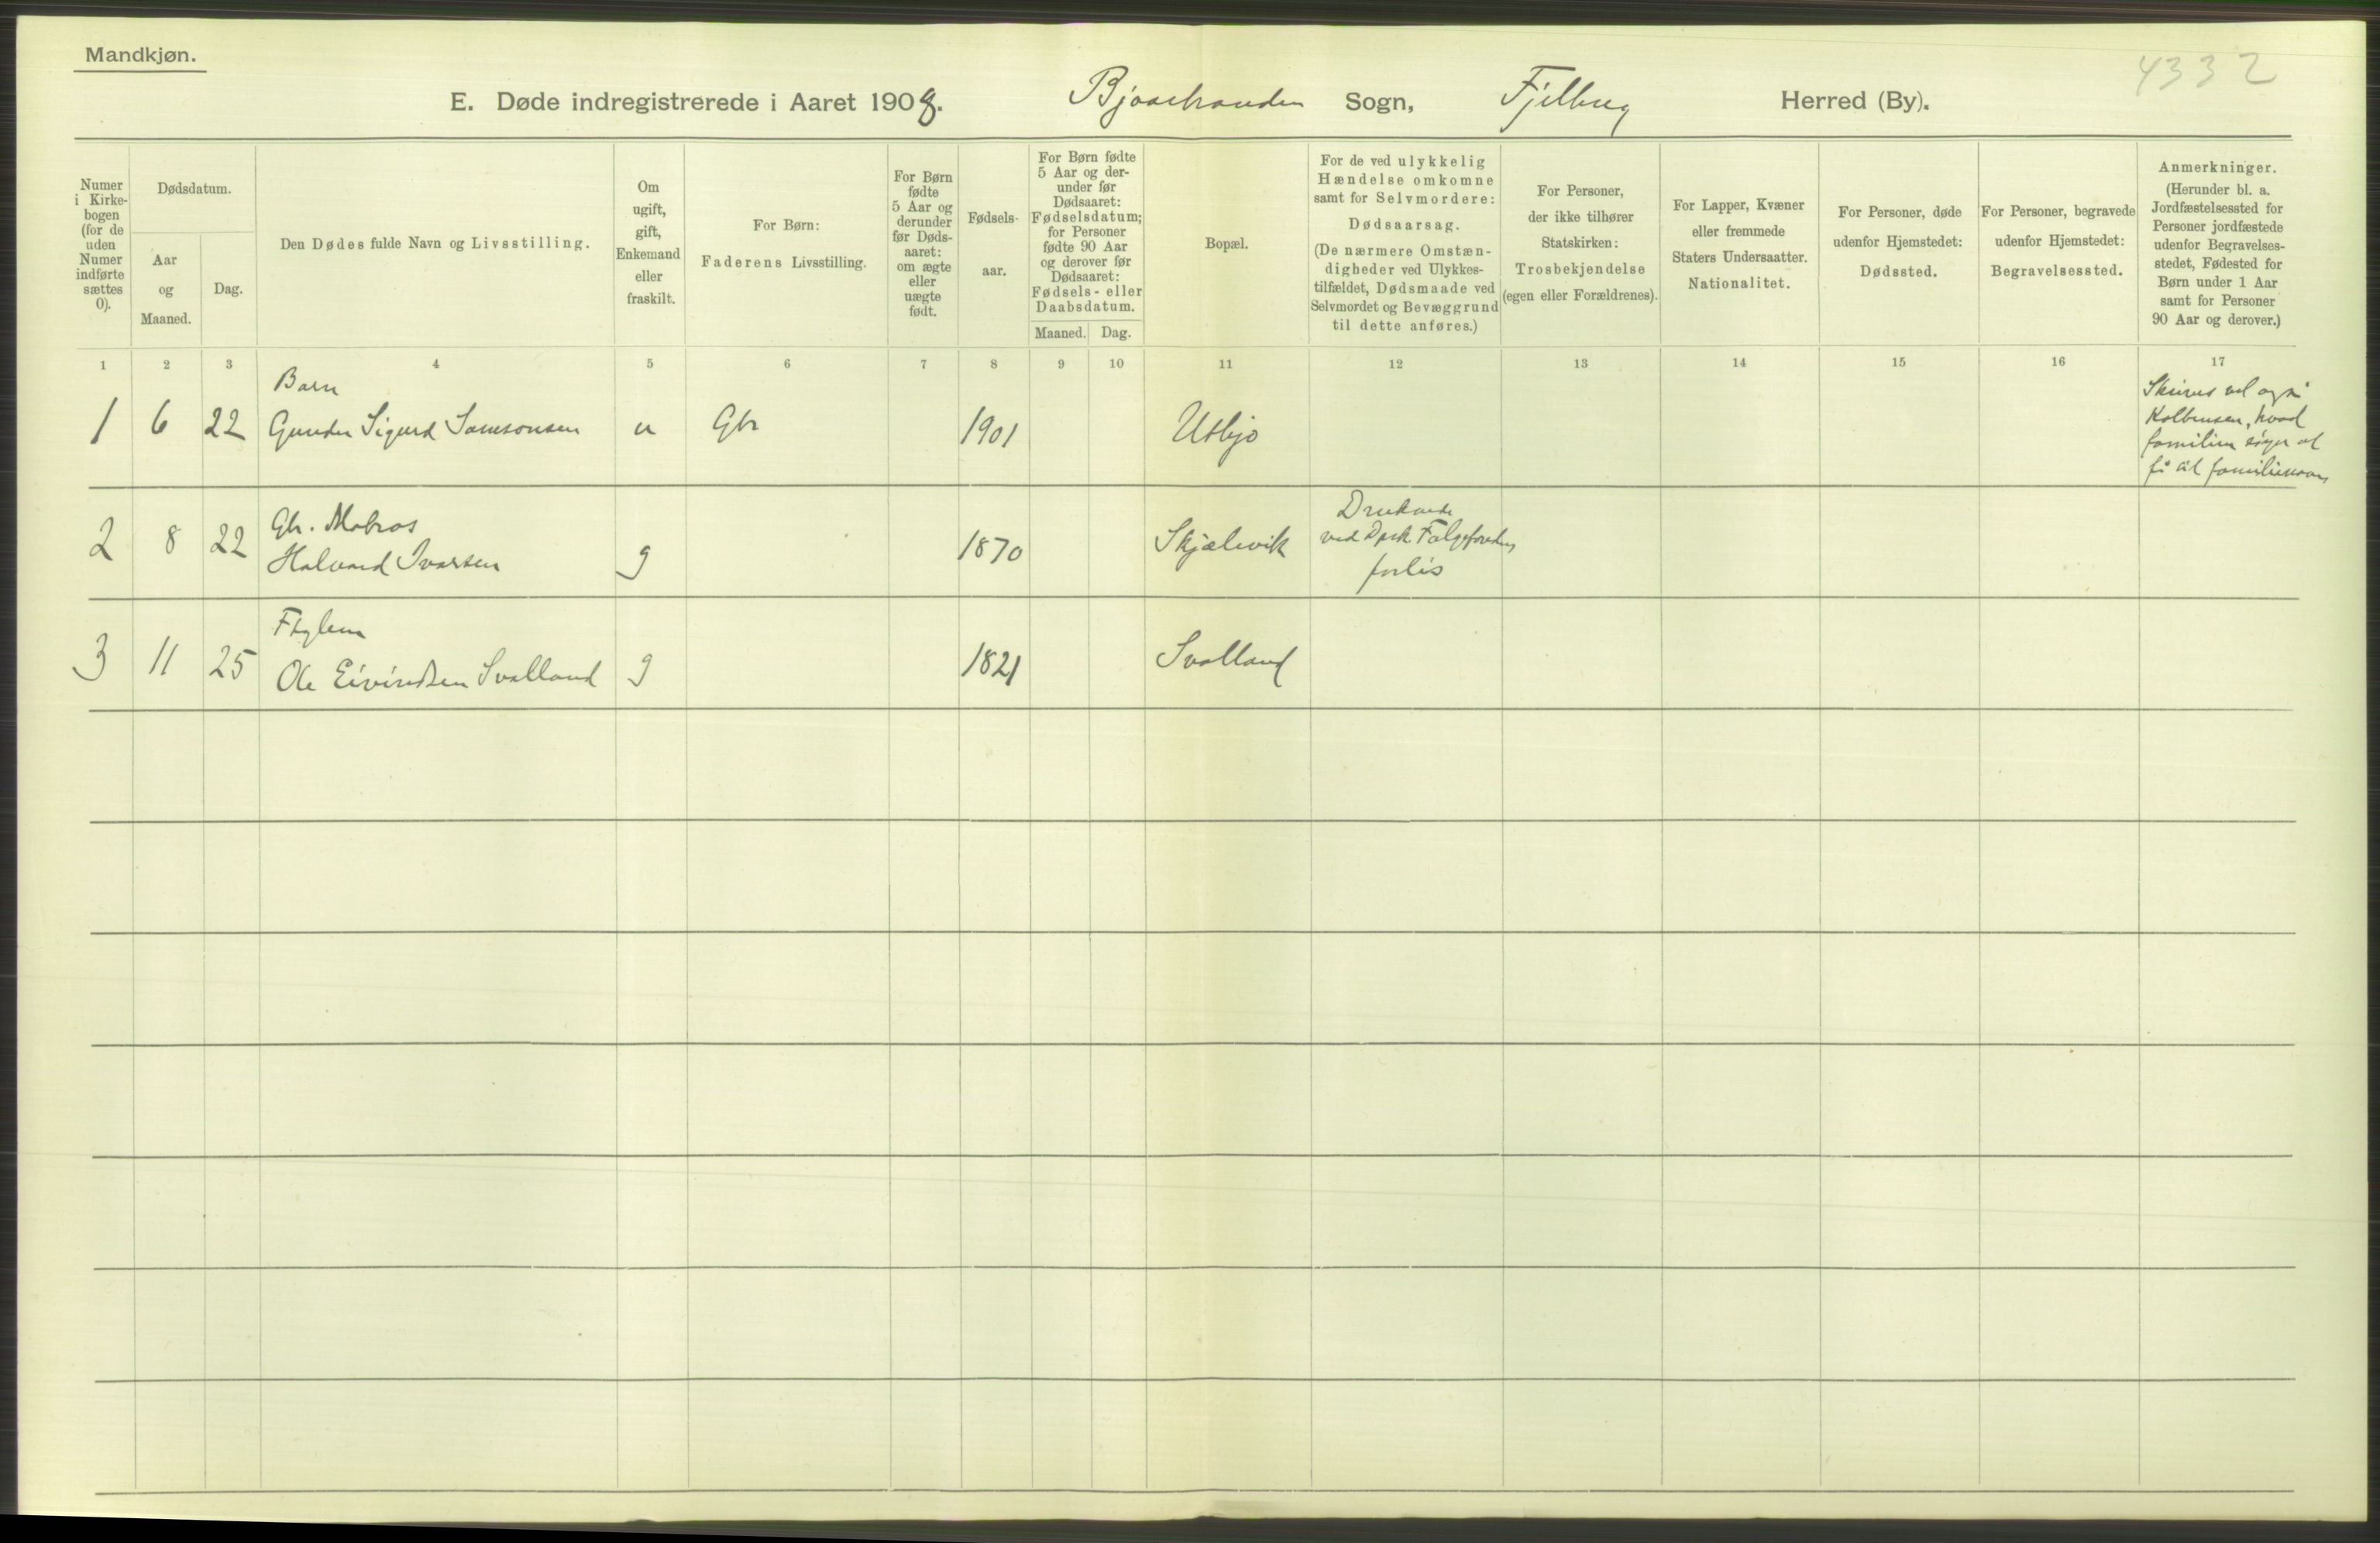 Mandkjøn.
4332
E. Døde indregistrerede i Aaret 1908. Bjoastranden Sogn, Fjelberg Herred (By).
Numer
i Kirke-
bogen
(for de
uden
Numer
indførte
sættes
0).
Dødsdatum.
Aar
og
Maaned.
Dag.
Den Dødes fulde Navn og Livsstilling.
Om
ugift,
gift,
Enkemand
eller
fraskilt.
For Børn:
Faderens Livsstilling.
For Børn
fødte
5 Aar og
derunder
før Døds-
aaret:
om ægte
eller
uægte
født.
Fødsels-
aar.
For Børn fødte
5 Aar og der-
under før
Dødsaaret:
Fødselsdatum;
for Personer
fødte 90 Aar
og derover før
Dødsaaret:
Fødsels- eller
Daabsdatum.
Maaned. Dag.
Bopæl.
For de ved ulykkelig
Hændelse omkomne
samt for Selvmordere:
Dødsaarsag.
(De nærmere Omstæn-
digheder ved Ulykkes-
tilfældet, Dødsmaade ved
Selvmordet og Bevæggrund
til dette anføres.)
For Personer,
der ikke tilhører
Statskirken:
Trosbekjendelse
(egen eller Forældrenes).
For Lapper, Kvæner
eller fremmede
Staters Undersaatter.
Nationalitet.
For Personer, døde
udenfor Hjemstedet:
Dødssted.
For Personer, begravede
udenfor Hjemstedet:
Begravelsessted.
Anmerkninger.
(Herunder bl. a.
Jordfæstelsessted for
Personer jordfæstede
udenfor Begravelses-
stedet, Fødested for
Børn under 1 Aar
samt for Personer
90 Aar og derover.)
1 2 3 4 5 6 7 8 9 10 11 12 13 14 15 16 17
Barn
1 6 22 Gunder Sigurd Samsonsen u Gbr 1901 Utbjo
Skrives vel også
Kolbensen, hvad
familien søger at
få til familienavn
2 8 22 Gbr. Matros
Halvard Ivarsen g 1870 Skjælevik
Druknede
ved Dpsk. Folgefondens
forlis
3 11 25
Ole Eivindsen Svalland g 1821 Svalland